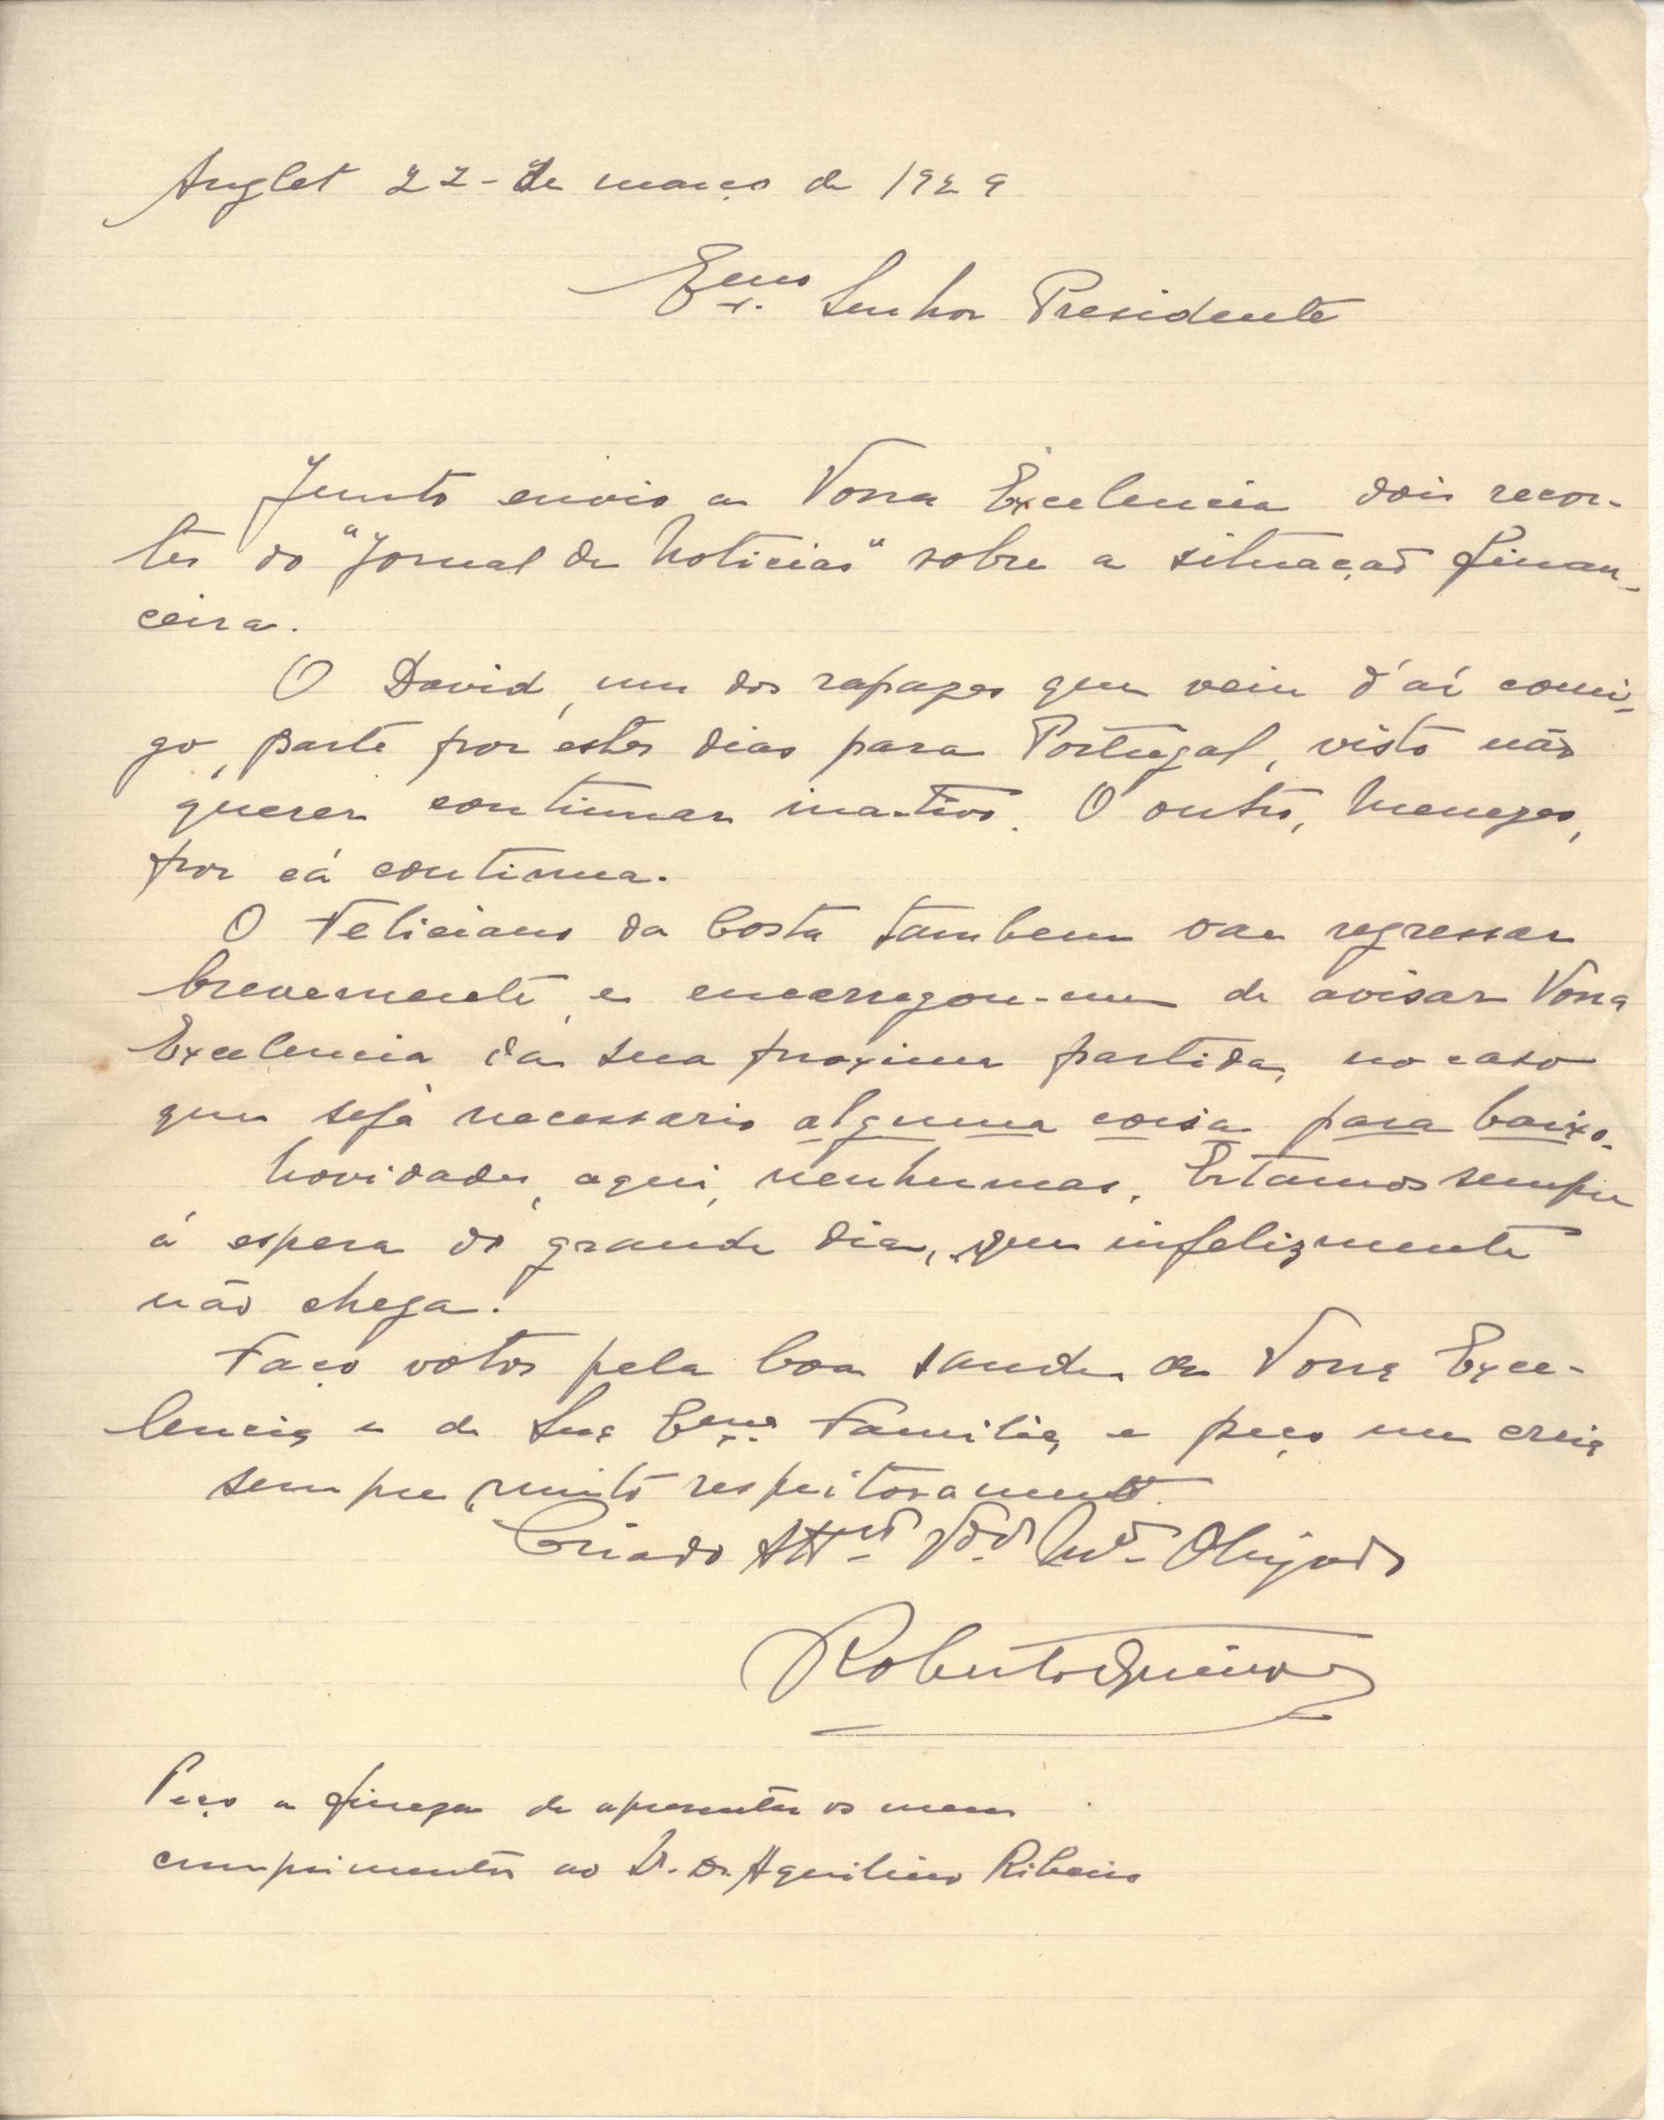 Anglet 22 - de março de 1929
Exmo Senhor Presidente
Junto envio a Vossa Excelencia dois recor-
tes do "Jornal de Noticias" sobre a situação finan-
ceira.
O David, um dos rapazes que veiu d'aí comi-
go, parte por estes dias para Portugal, visto não
querer continuar inativo. O outro, Menezes,
por cá continua.
O Feliciano da Costa tambem vae regressar
brevemente, e encarregou-me de avisar Vossa
Excelencia da sua proxima partida, no caso
que seja necessario alguma coisa para baixo.
Novidades, aqui, nenhumas. Estamos sempre
á espera do grande dia, que infelizmente
não chega!
Faço votos pela boa saude de Vossa Exce-
lencia e de Sua Exma Familia, e peço me creia
sempre, muito respeitosamente
Criado Atto Vdor Mto Obrigado
Roberto
Peço a fineza de apresentar os meus
cumprimentos ao Sr. Dr. Aquilino Ribeiro